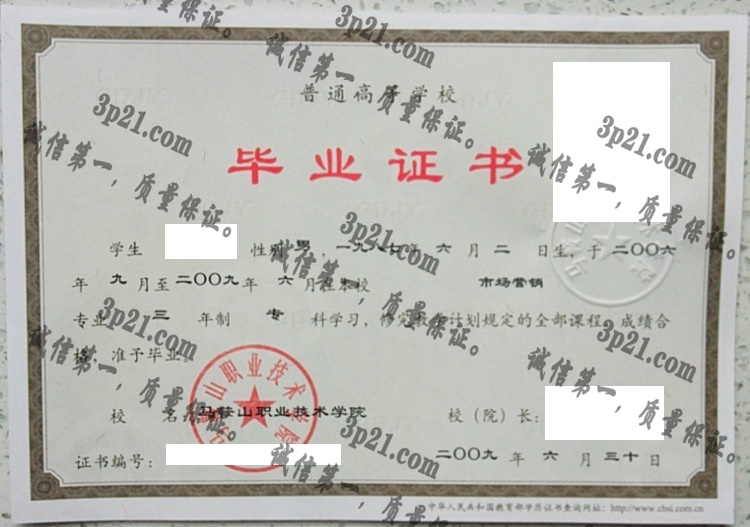 普通高等学校
毕业证书
学生 性别 男，一九八七年 六 月 二 日生，于 二〇〇六
年 九 月至 二〇〇九 年 六 月在本校 市场营销
专业 三 年制 专 科学习，修完教学计划规定的全部课程，成绩合
格，准予毕业。
校 名：马鞍山职业技术学院 校（院）长：
证书编号： 二〇〇九 年 六 月 三十 日
中华人民共和国教育部学历证书查询网址：http://www.chsi.com.cn
马鞍山职业技术学院
3p21.com
诚信第一，质量保证。
3p21.com
诚信第一，质量保证。
3p21.com
诚信第一，质量保证。
3p21.com
诚信第一，质量保证。
3p21.com
诚信第一，质量保证。
3p21.com
诚信第一，质量保证。
3p21.com
诚信第一，质量保证。
3p21.com
诚信第一，质量保证。